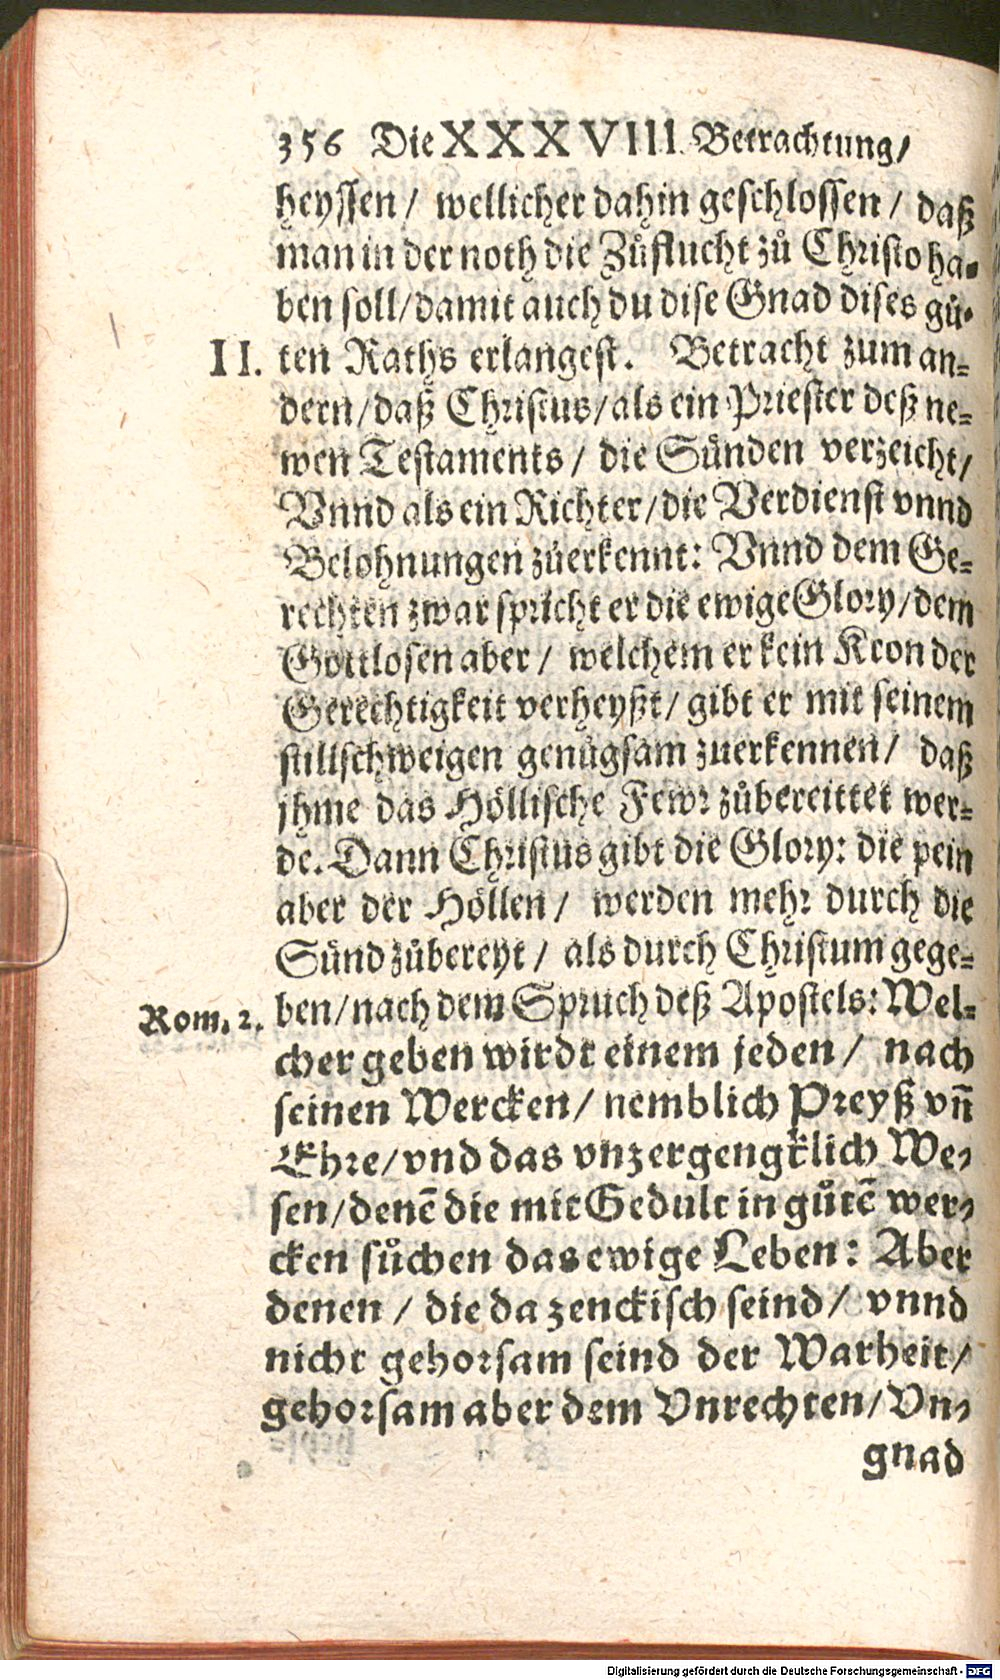 356 Die XXXVIII. Betrachtung/
heyssen/ wellicher dahin geschlossen/ daß
man in der noth die Zůflucht zů Christo ha-
ben soll/damit auch du dise Gnad dises gů-
II. ten Raths erlangest. Betracht zum an-
dern/daß Christus/als ein Priester deß ne-
wen Testaments/ die Sünden verzeicht/
Vnnd als ein Richter/die Verdienst vnnd
Belohnungen zůerkennt: Vnnd dem Ge-
rechten zwar spricht er die ewige Glory/dem
Gottlosen aber/ welchem er kein Kron der
Gerechtigkeit verheyßt/ gibt er mit seinem
stillschweigen genůgsam zuerkennen/ daß
jhme das Höllische Fewr zůbereittet wer-
de. Dann Christus gibt die Glory: die pein
aber der Höllen/ werden mehr durch die
Sünd zůbereyt/ als durch Christum gege-
Rom. 2. ben/nach dem Spruch deß Apostels: Wel-
cher geben wirdt einem jeden/ nach
seinen Wercken/ nemblich Preyß vñ
Ehre/vnd das vnzergengklich We-
sen/denē die mit Gedult in gůtē wer-
cken sůchen das ewige Leben: Aber
denen/ die da zenckisch seind/ vnnd
nicht gehorsam seind der Warheit/
gehorsam aber dem Vnrechten/Vn-
gnad
Digitalisierung gefördert durch die Deutsche Forschungsgemeinschaft - DFG